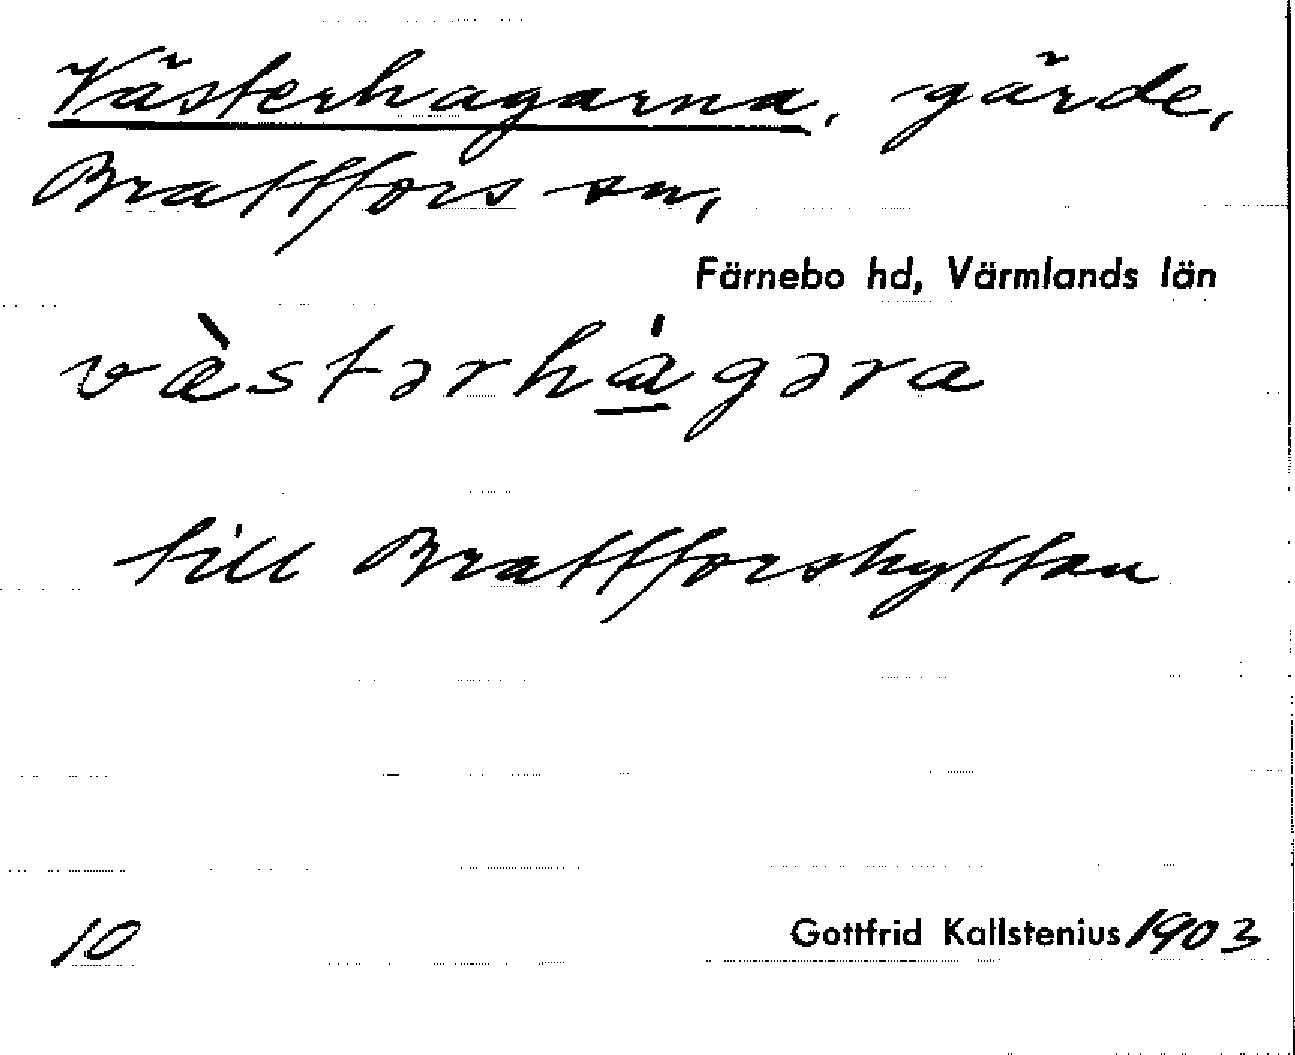 Västerhagarna, gärde,
Brattfors sn,
Färnebo hd, Värmlands län
və̀stərhágəra
till Brattforshyttan
10
Gottfrid Kallstenius 1903